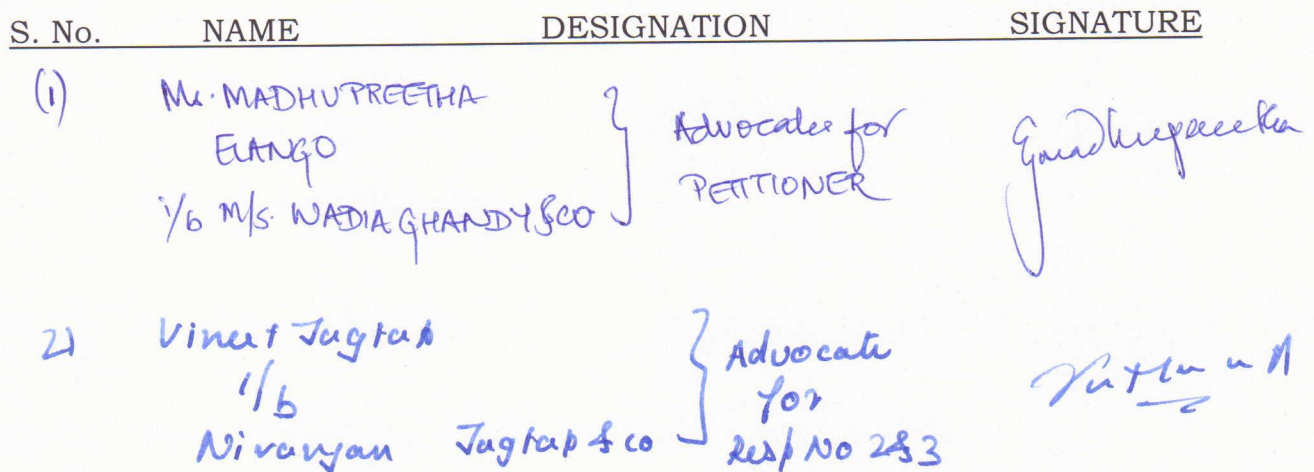 S. No. NAME DESIGNATION SIGNATURE
(1) Ms. MADHUPREETHA
ELANGO
i/b M/s. WADIA GHANDY & CO } Advocates for PETITIONER
2) Vineet Jagtap
i/b
Niranjan Jagtap & co } Advocate
for
Resp No 2 & 3